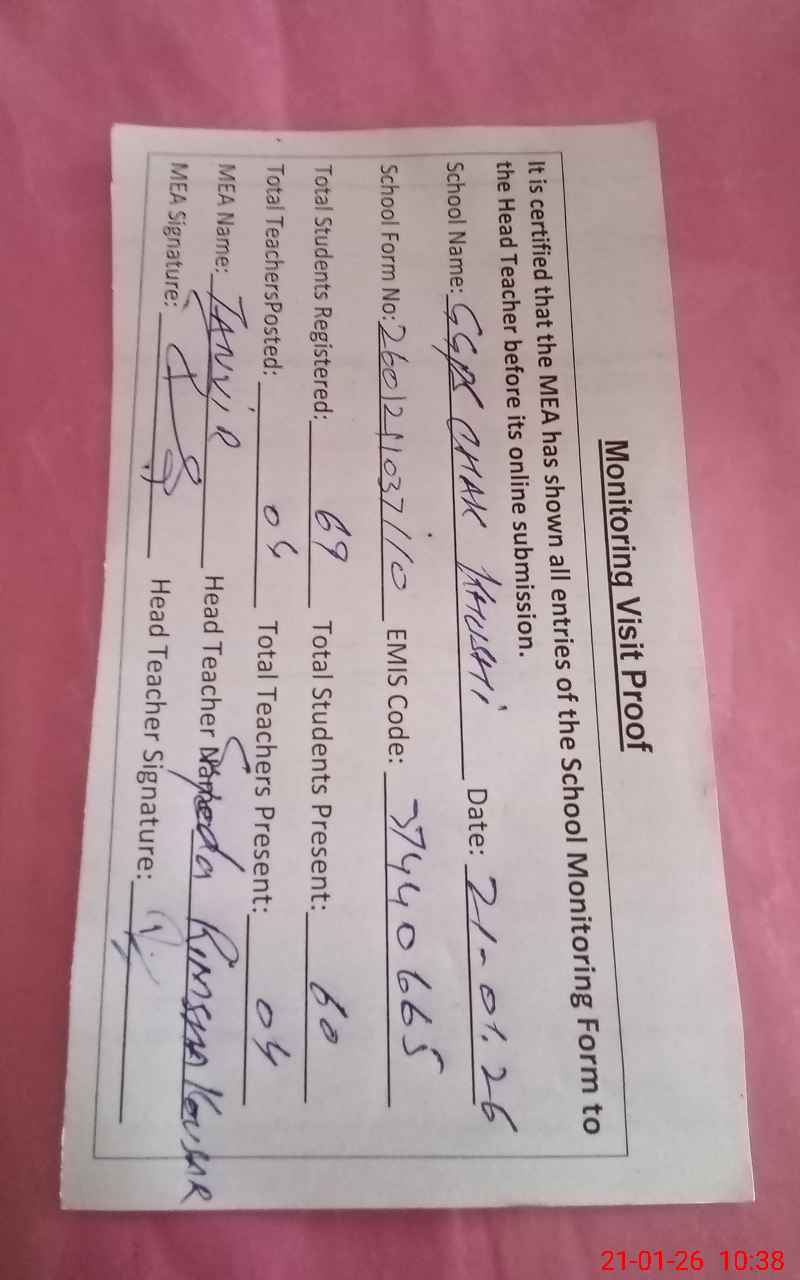 Monitoring Visit Proof
It is certified that the MEA has shown all entries of the School Monitoring Form to
the Head Teacher before its online submission.
School Name: GGPS CHAK KHUSHI Date: 21-01.26
School Form No: EMIS Code: 37440665
Total Students Registered: 69 Total Students Present: 60
Total TeachersPosted: 04 Total Teachers Present: 04
MEA Name: TANVIR Head Teacher Name: Rimsha Kousar
MEA Signature: Head Teacher Signature:
21-01-26 10:38